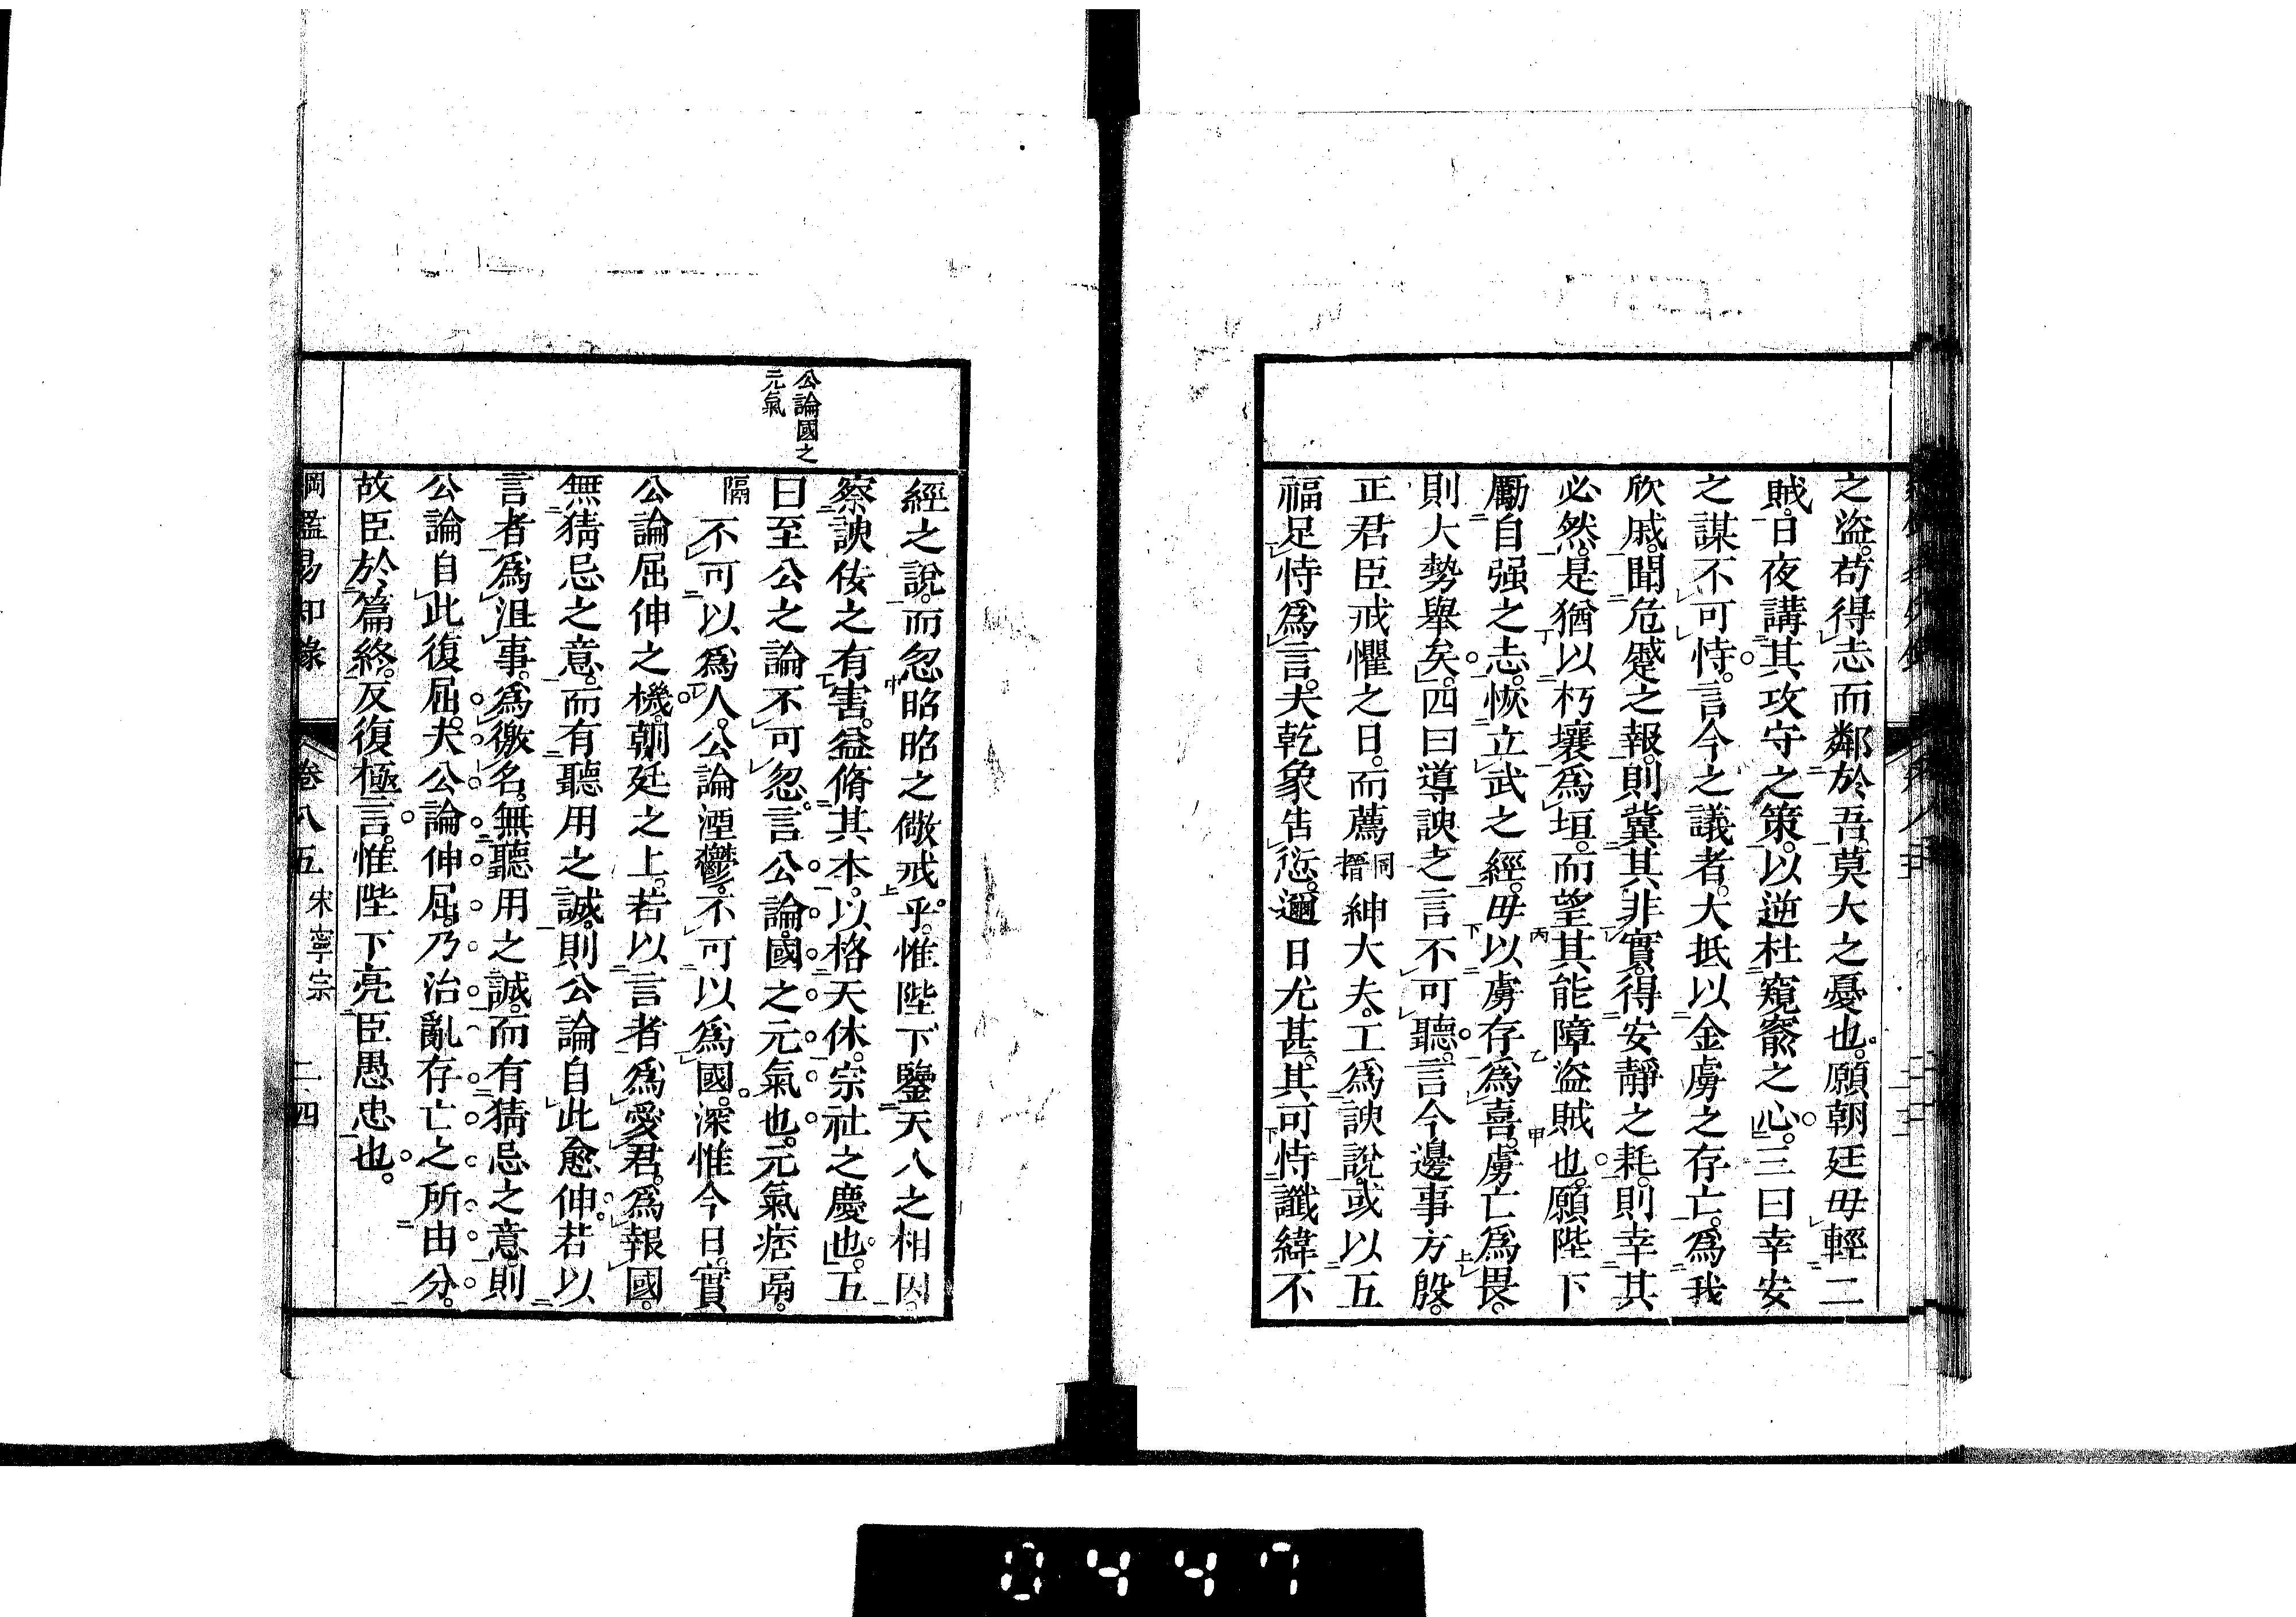 之盜。苟得志而鄰於吾。莫大之憂也。願朝廷毋輕二
賊。日夜講其攻守之策。以逆杜窺窬之心。三曰幸安
之謀不可恃。言今之議者。大抵以金虜之存亡。爲我
欣戚。聞危蹙之報。則冀其非實。得安靜之耗。則幸其
必然。是猶以朽壤爲垣。而望其能障盜賊也。願陛下
勵自强之志。恢立武之經。毋以虜存爲喜。虜亡爲畏。
則大勢舉矣。四曰導諛之言不可聽。言今邊事方殷。
正君臣戒懼之日。而薦同搢紳大夫。工爲諛說。或以五
福足恃爲言。夫乾象告愆。邇日尤甚。其可恃讖緯不
經之說。而忽昭昭之儆戒乎。惟陛下鑒天人之相因。
察諛佞之有害。益脩其本。以格天休。宗社之慶也。五
曰至公之論不可忽。言公論。國之元氣也。元氣痞鬲。
隔不可以爲人。公論湮鬱。不可以爲國。深惟今日。實
公論屈伸之機。朝廷之上。若以言者爲愛君。爲報國。
無猜忌之意。而有聽用之誠。則公論自此愈伸。若以
言者爲沮事。爲徼名。無聽用之誠。而有猜忌之意。則
公論自此復屈。夫公論伸屈。乃治亂存亡之所由分。
故臣於篇終。反復極言。惟陛下亮臣愚忠也。
公論國之
元氣
綱鑑易知錄 卷八五 宋寧宗 二四
0447